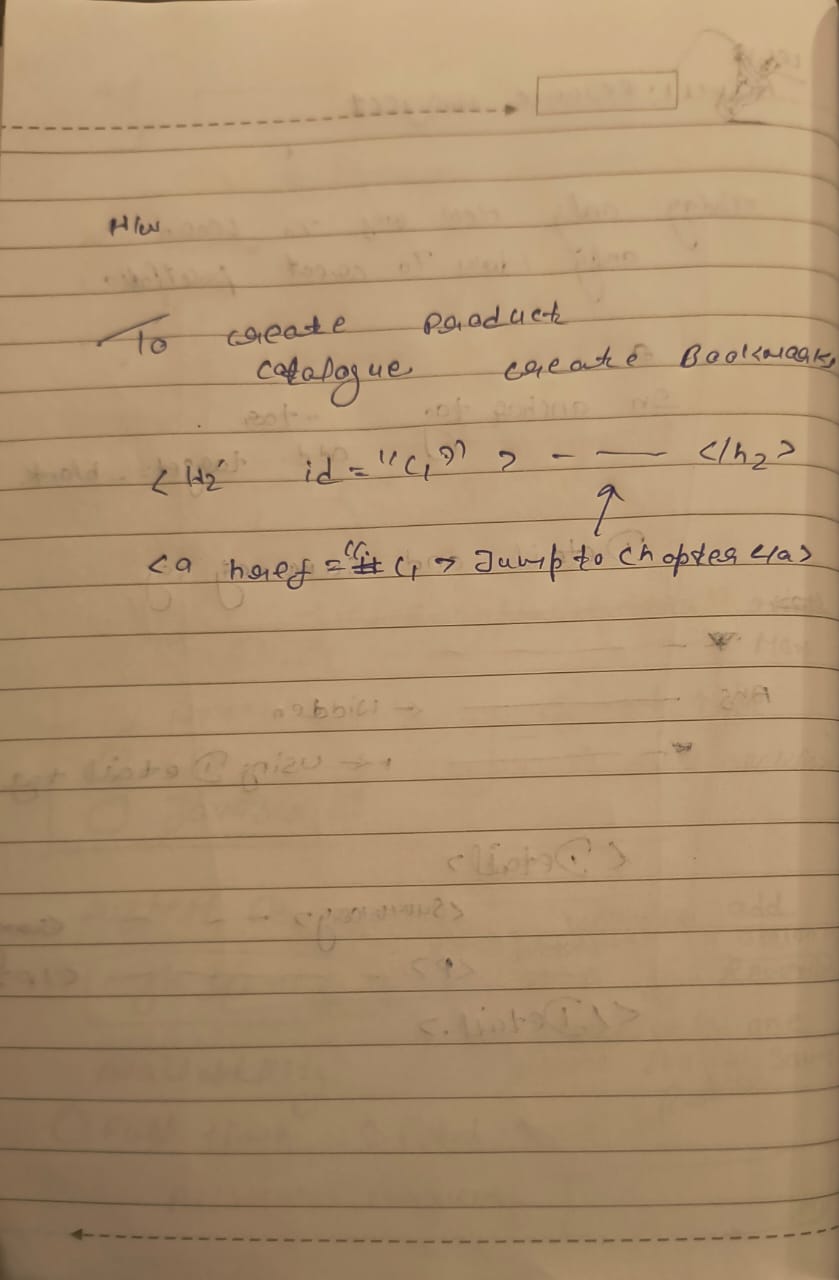 H/w
To create Product
Catalogue create Bookmark
<H2 id = "C1" > - — </h2>
<a href = "# C1 > Jump to Chapter </a>